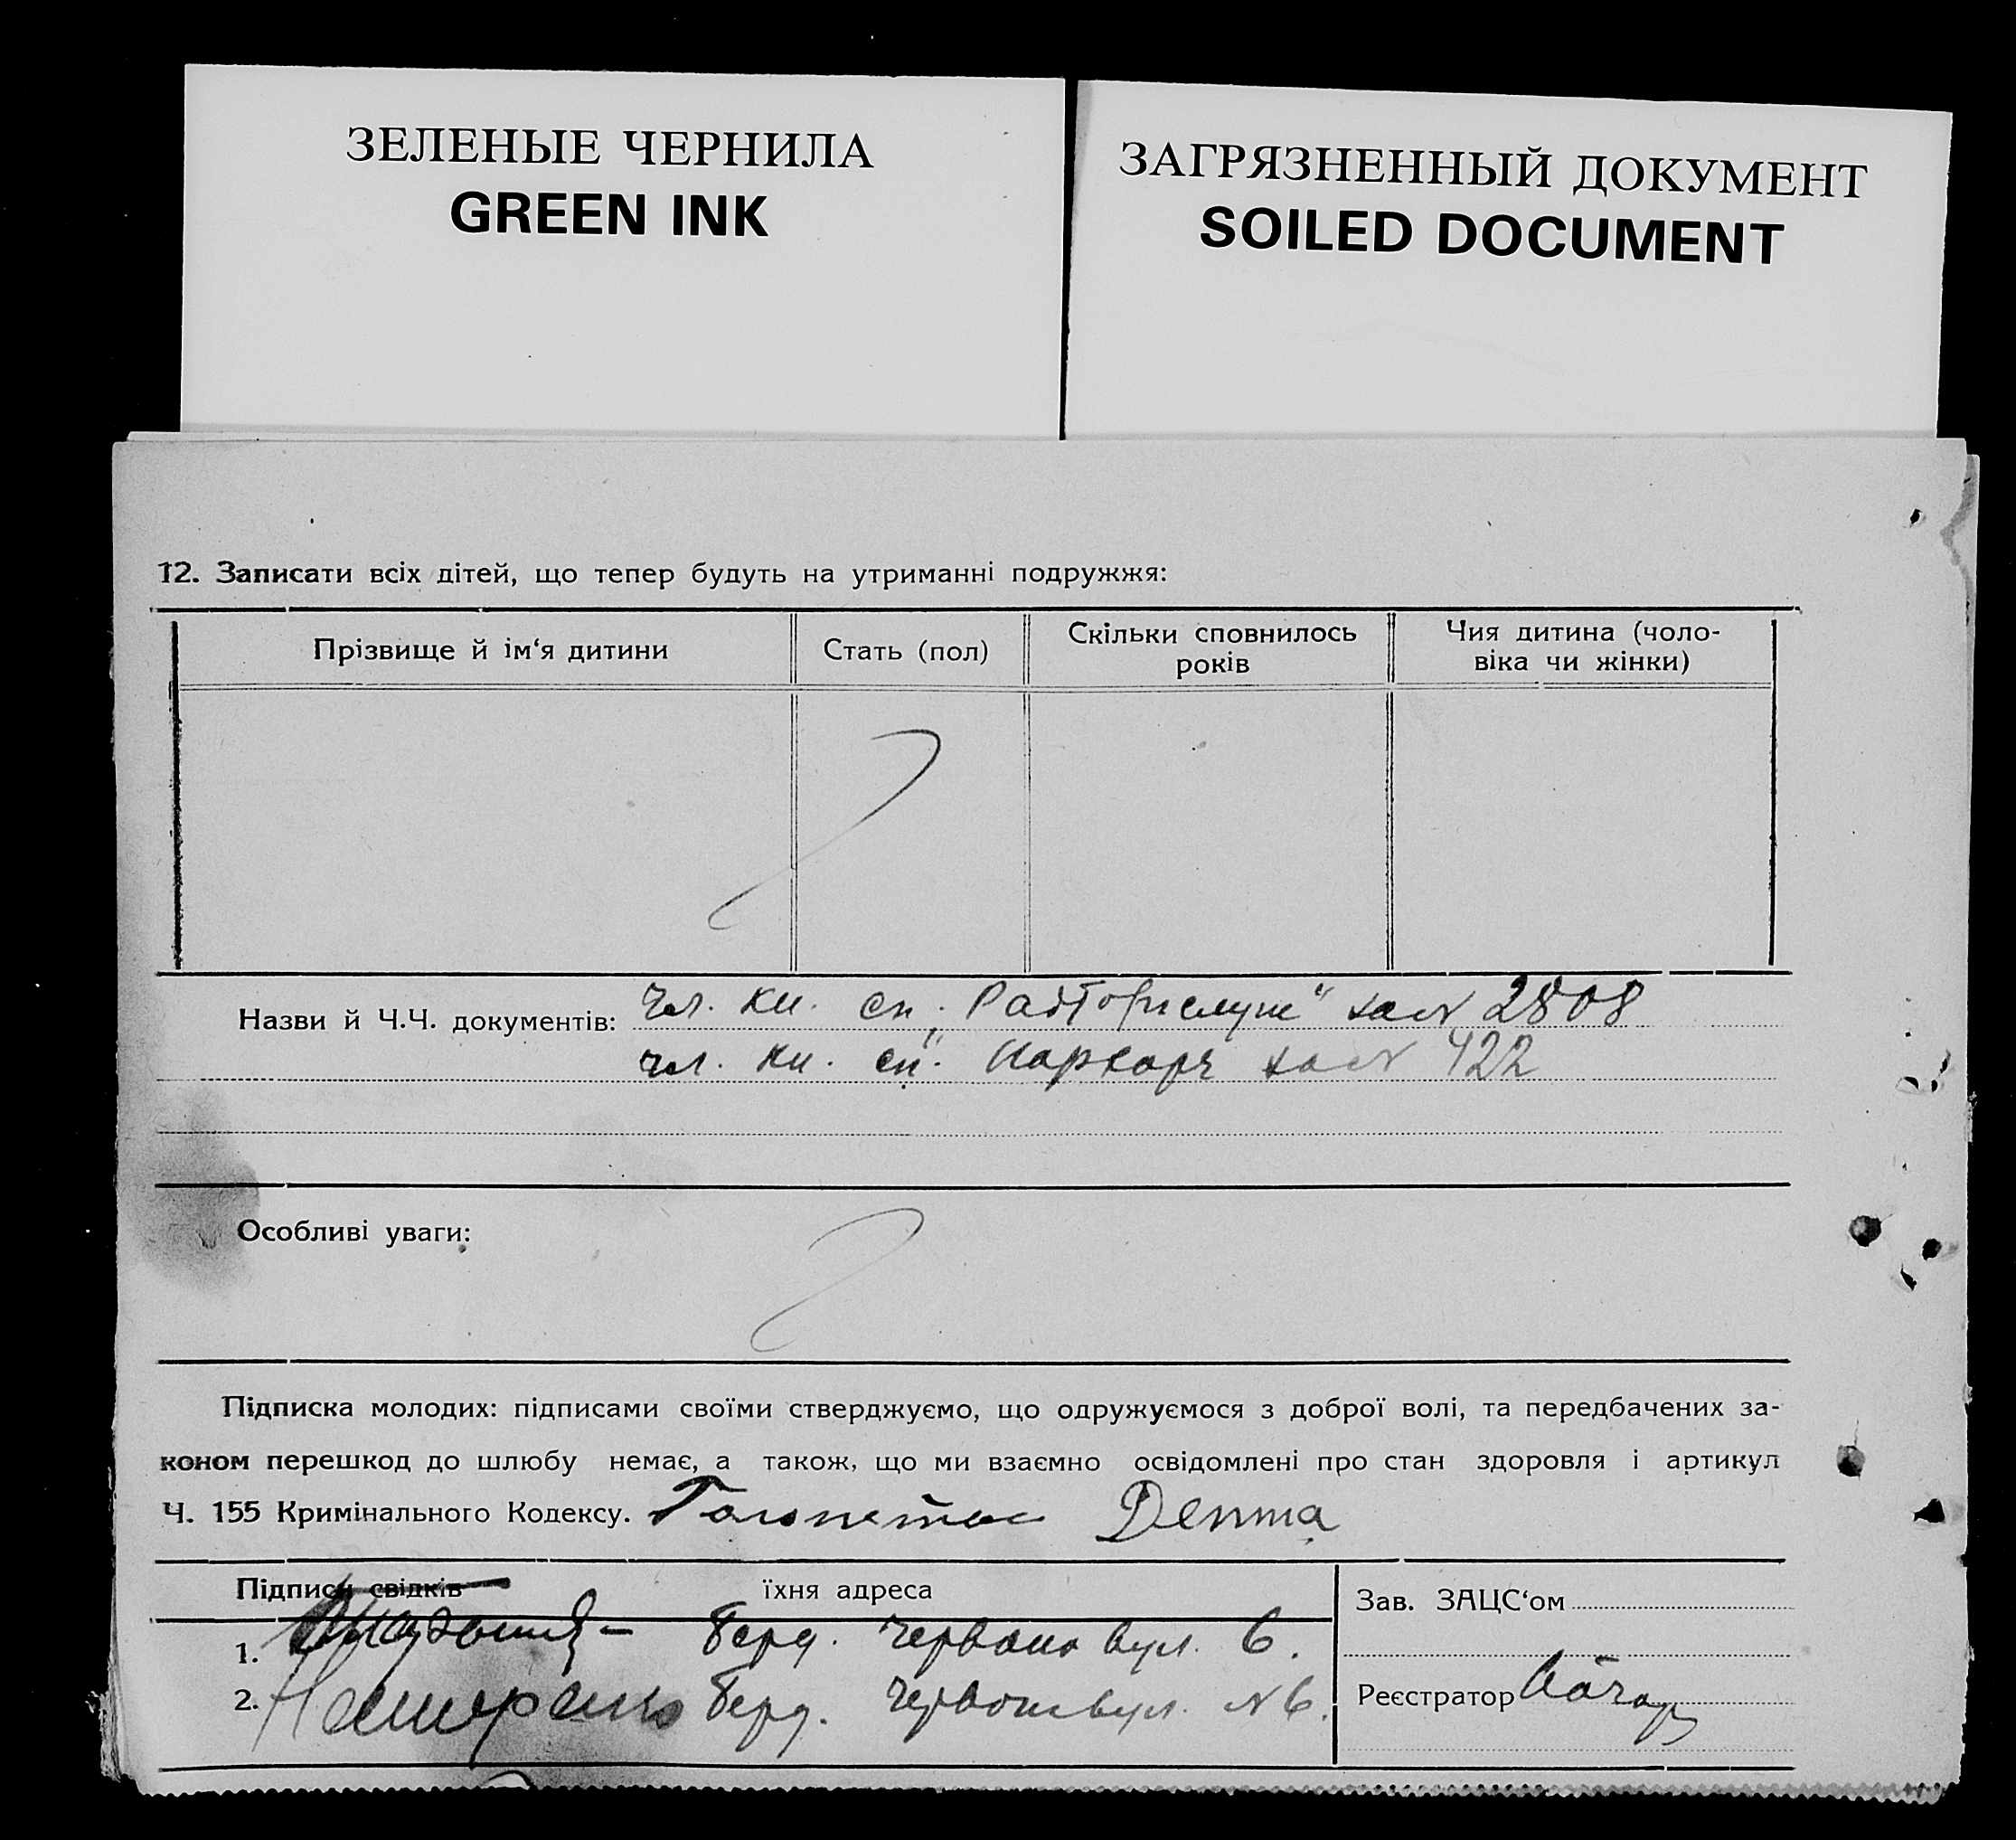 ЗЕЛЕНЫЕ ЧЕРНИЛА
GREEN INK
ЗАГРЯЗНЕННЫЙ ДОКУМЕНТ
SOILED DOCUMENT
12. Записати всіх дітей, що тепер будуть на утриманні подружжя:
Прізвище й ім‘я дитини
Стать (пол)
Скільки сповнилось
років
Чия дитина (чоло-
віка чи жінки)
Назви й Ч.Ч. документів: чл. кн. сп. за № 2808
чл. кн. сп. за № 422
Особливі уваги:
Підписка молодих: підписами своїми стверджуємо, що одружуємося з доброї волі, та передбачених за-
коном перешкод до шлюбу немає, а також, що ми взаємно освідомлені про стан здоровля і артикул
Ч. 155 Кримінального Кодексу.
Підписи свідків їхня адреса
1. Берд. Червона вул. 6.
2. Берд. Червона вул. № 6.
Зав. ЗАЦС‘ом
Реєстратор